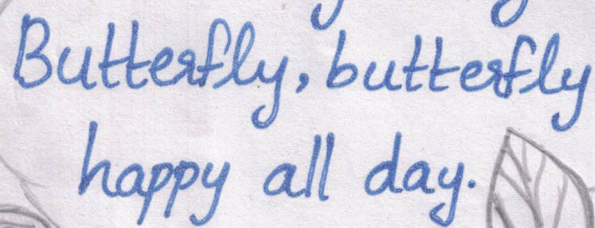 Butterfly, butterfly
happy all day.